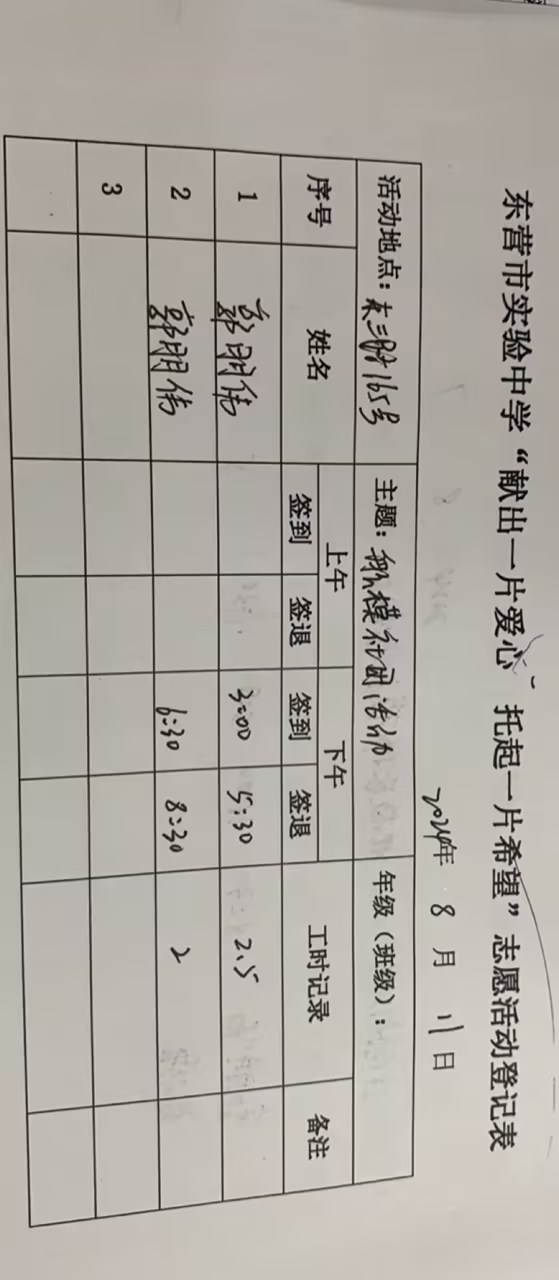 东营市实验中学“献出一片爱心 托起一片希望”志愿活动登记表
2024年 8 月 11日
活动地点：东三路165号 主题：航模社团活动 年级（班级）：
序号 姓名 上午 下午 工时记录 备注
签到 签退 签到 签退
1 郭明伟 3:00 5:30 2.5
2 郭明伟 6:30 8:30 2
3